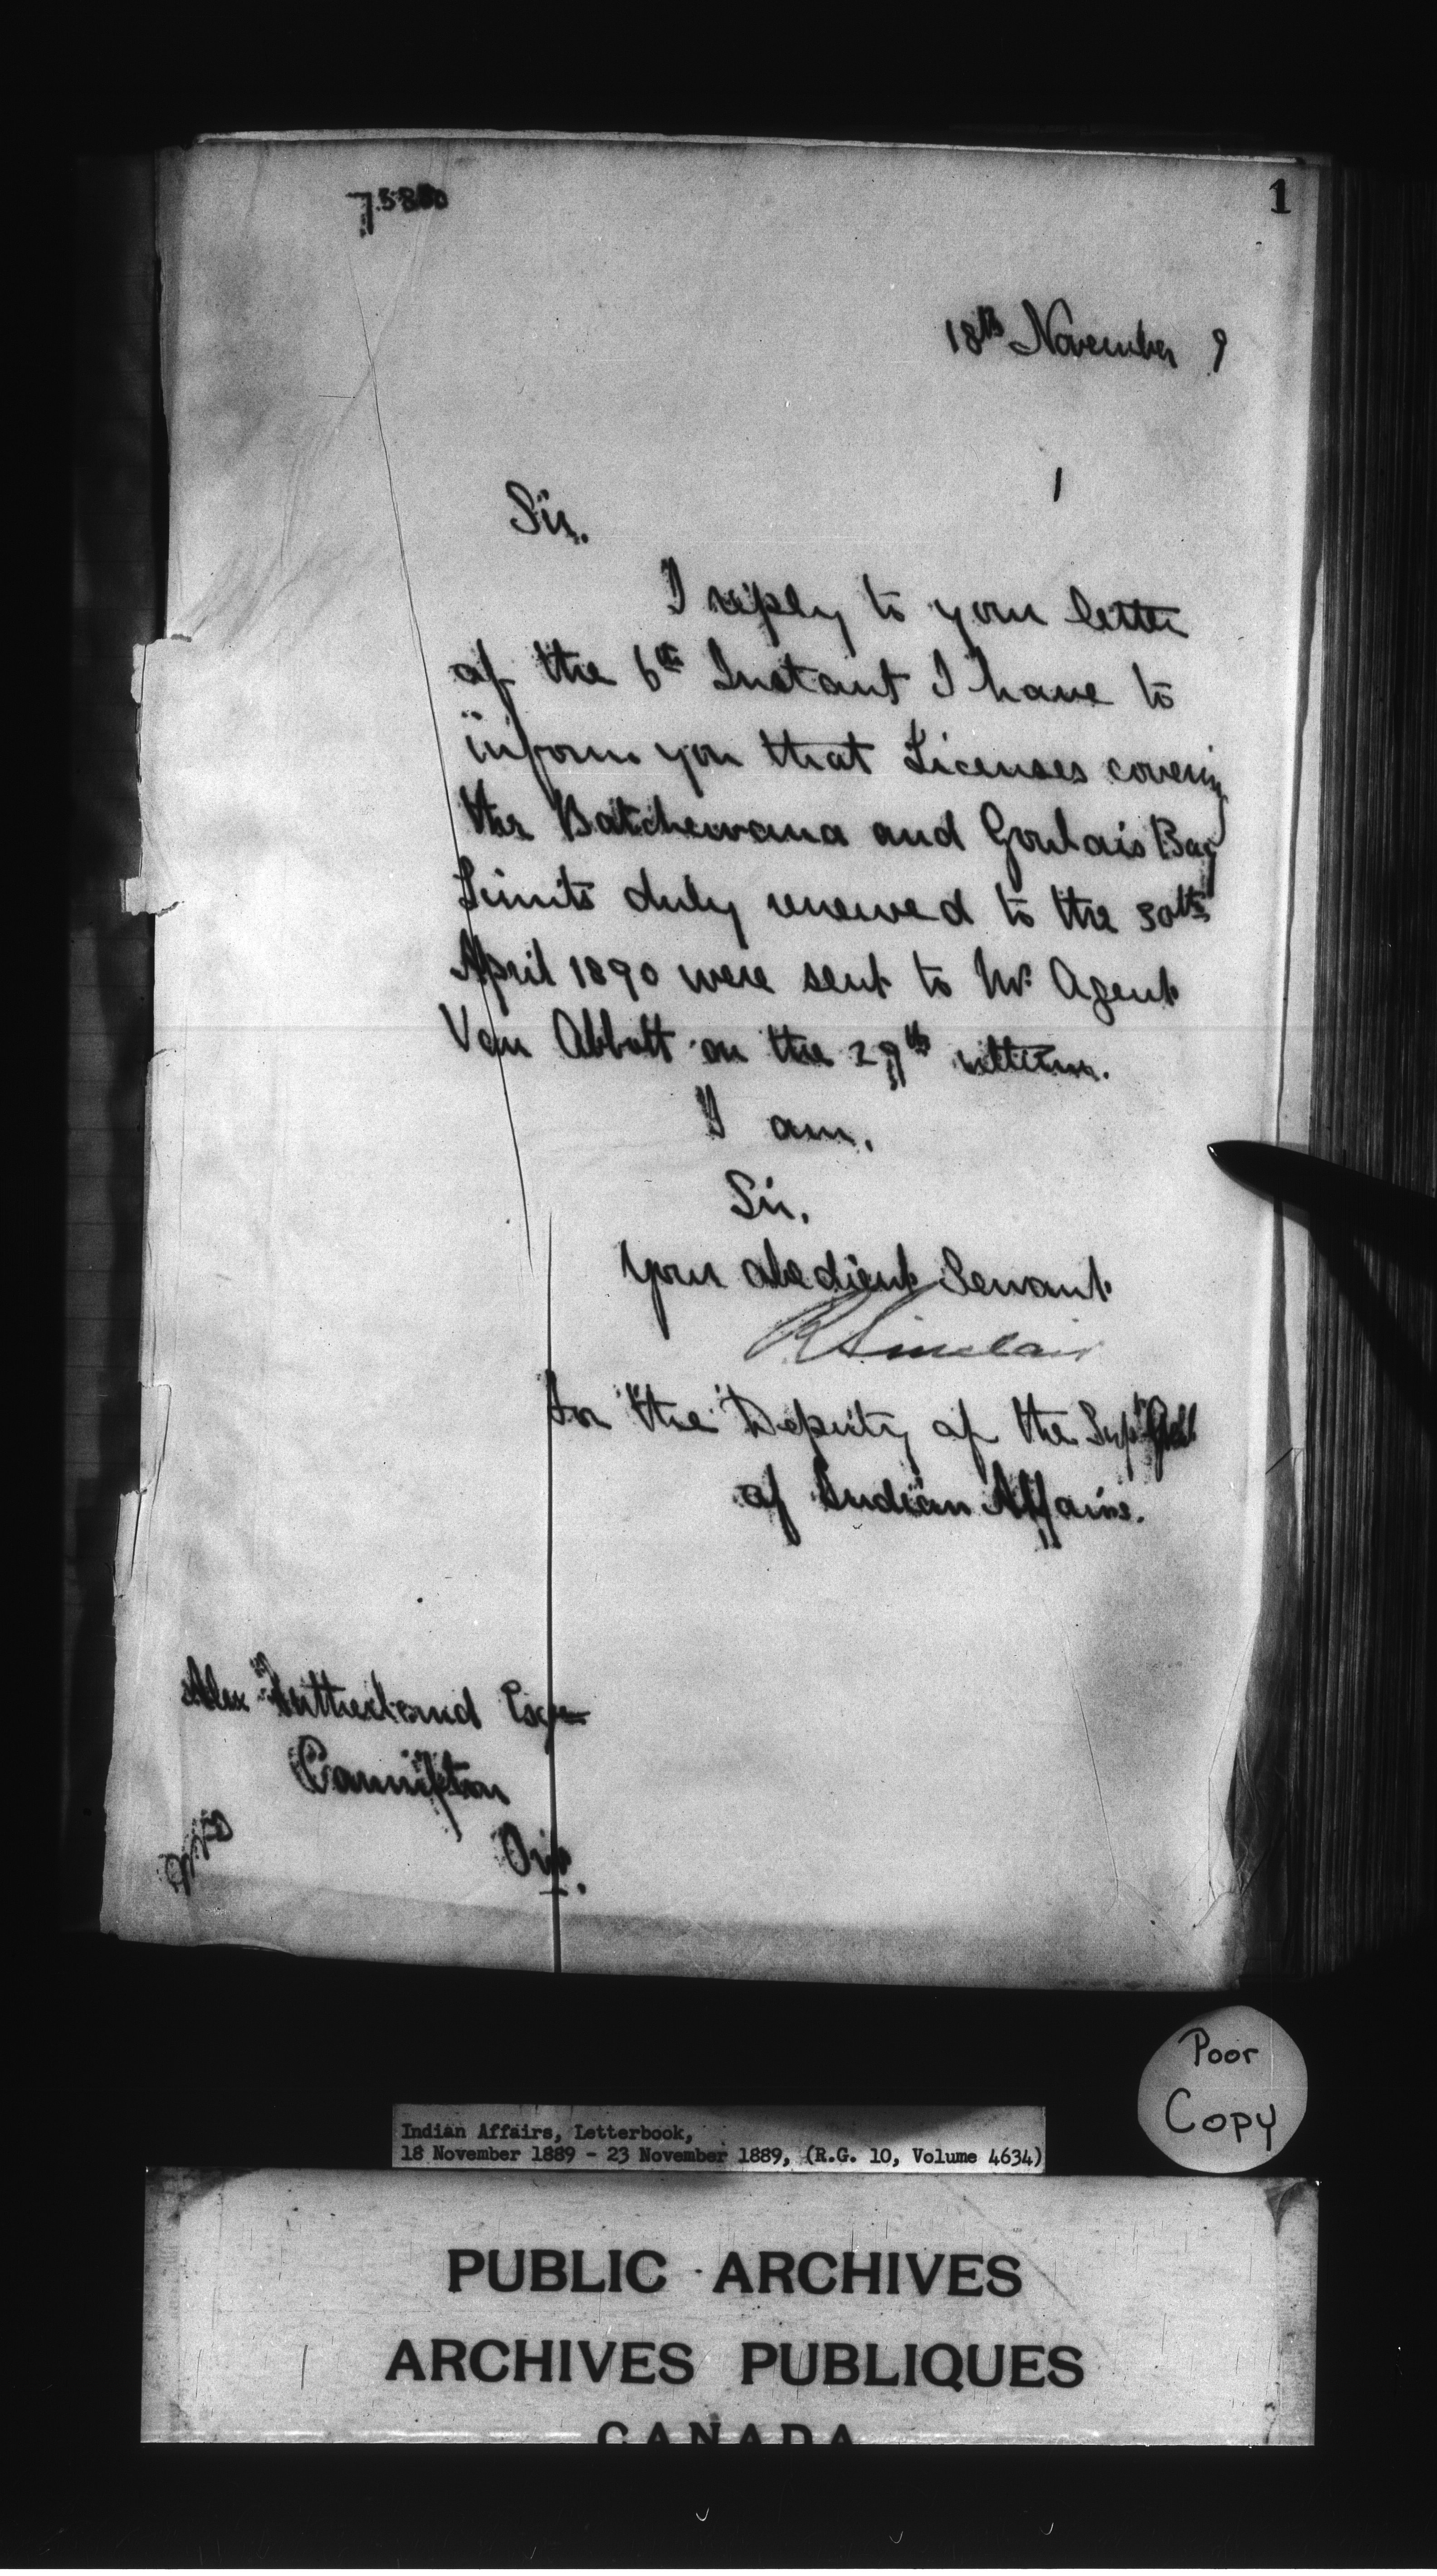 1
18th November 9
1
Sir.
I reply to your letter
of the 6th Instant I have to
inform you that Licenses covering
the Batchewana and Goulais Bay
Limits duly renewed to the 30th
April 1890 were sent to Mr Agent
Van Abbott on the 29th ultimo.
I am,
Sir,
Your obedient Servant
R Sinclair
for the Deputy of the Sup Genl
of Indian Affairs.
Alex Sutherland Esqre
Cannifton
Ont.
Poor
Copy
Indian Affairs, Letterbook,
18 November 1889 - 23 November 1889, (R.G. 10, Volume 4634)
PUBLIC ARCHIVES
ARCHIVES PUBLIQUES
CANADA